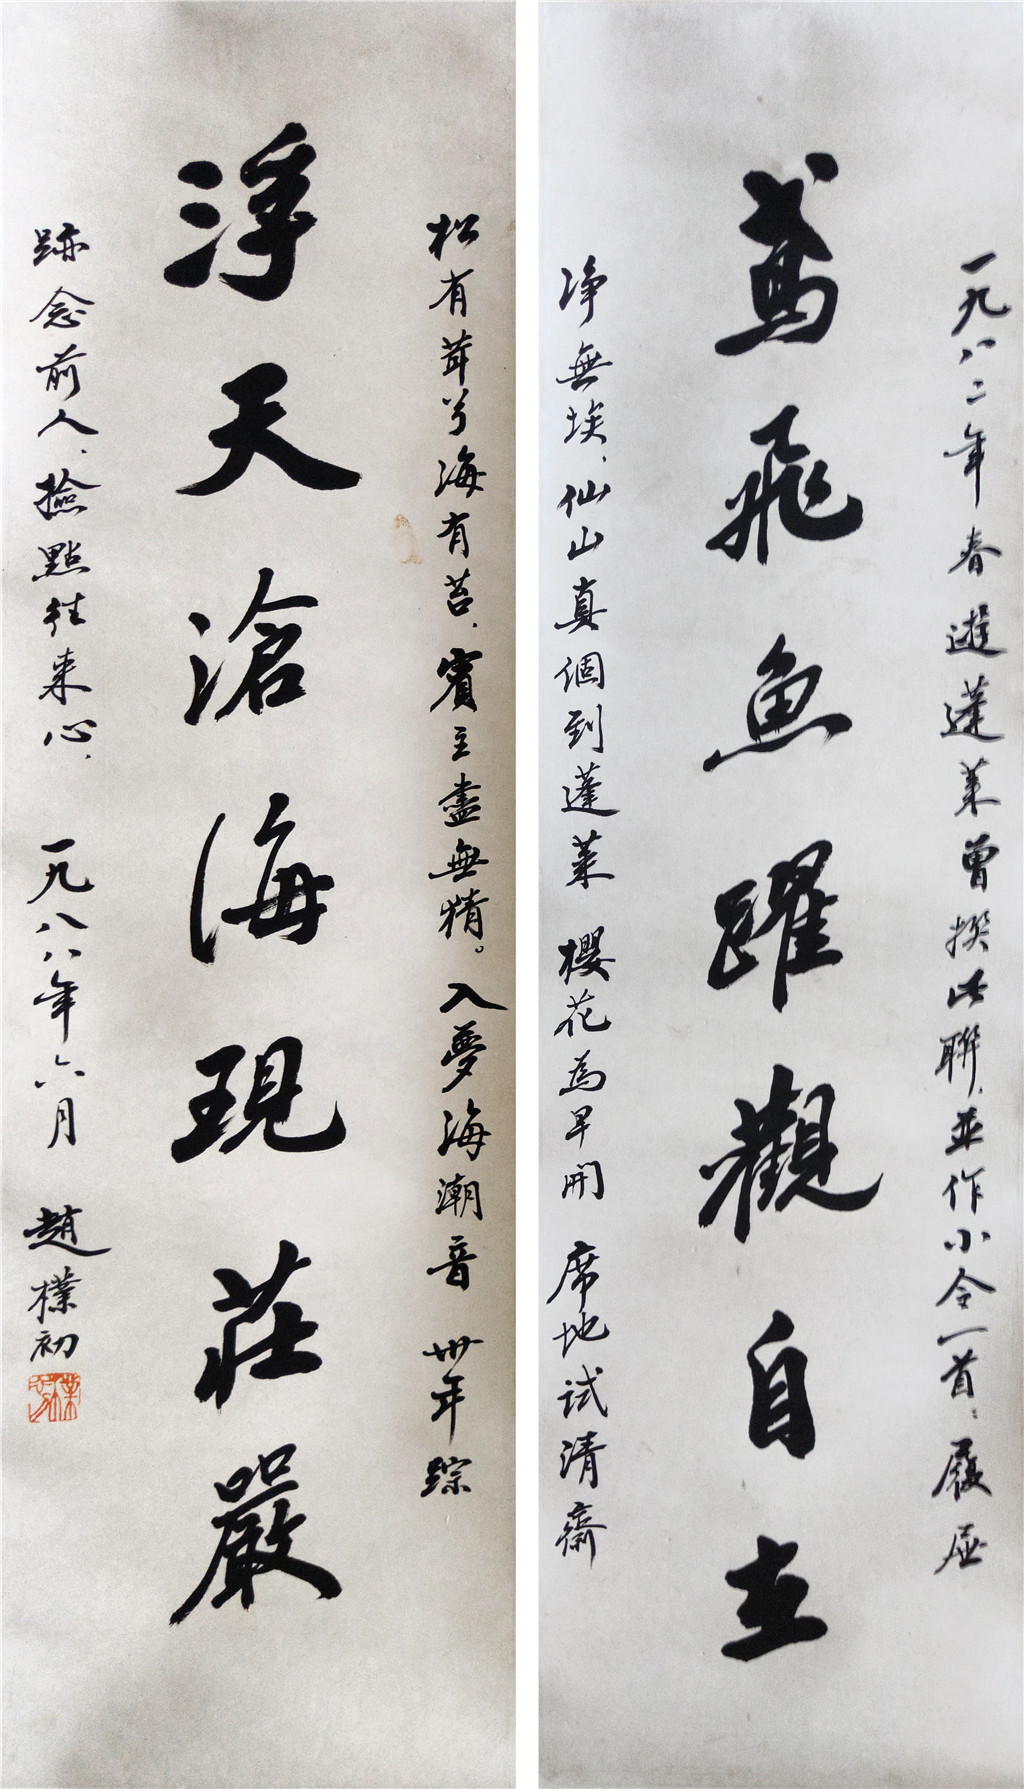 一九八二年春遊蓬莱曾撰此联並作小令一首：履
鳶飛魚躍觀自在
净無埃，仙山真個到蓬莱 櫻花為早開 席地試清齋
松有茸兮海有苔，賓主盡無猜。入夢海潮音 卅年踪
浮天滄海現莊嚴
跡念前人，撿點往来心，一九八八年六月 趙樸初
樸初